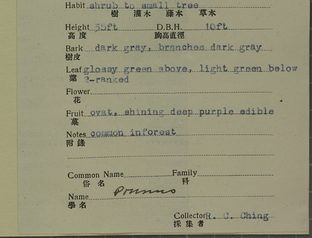 Habit shrub to small tree
樹 灌木 藤本 草本
Height 35ft D.B.H. 10ft
高度 胸高直徑
Bark dark gray, branches dark gray
樹皮
Leaf glossy green above, light green below
葉 2-ranked
Flower
花
Fruit ovat, shining deep purple edible
菓
Notes common inforest
附錄
Common Name Family
俗名 科
Name Prunus
學名
Collector R. C. Ching
採集者